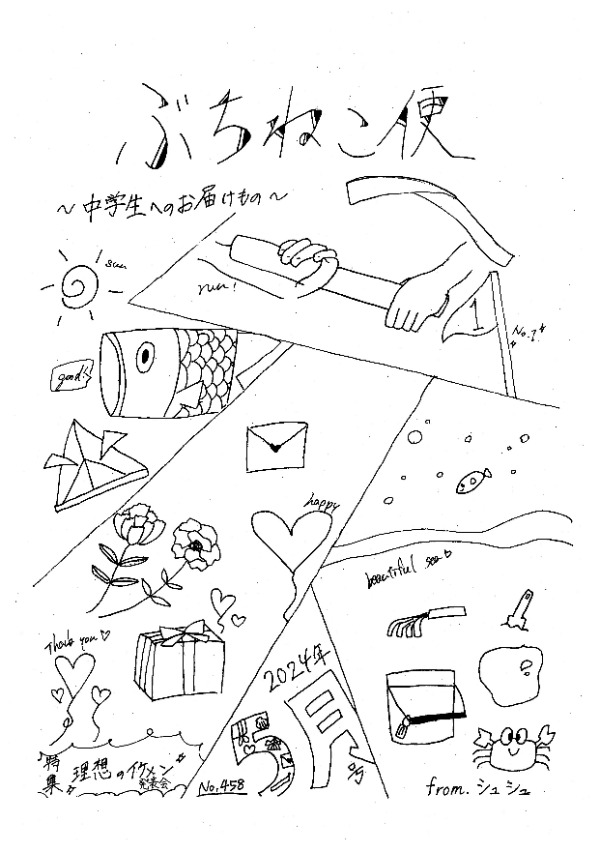 ぶちねこ便
～中学生へのお届けもの～
sun
run!
1
No.1
good!
happy
beautiful sea♡
Thank you♡
2024年
5月号
特集 理想のイケメン発表会
No.458
from. シュシュ